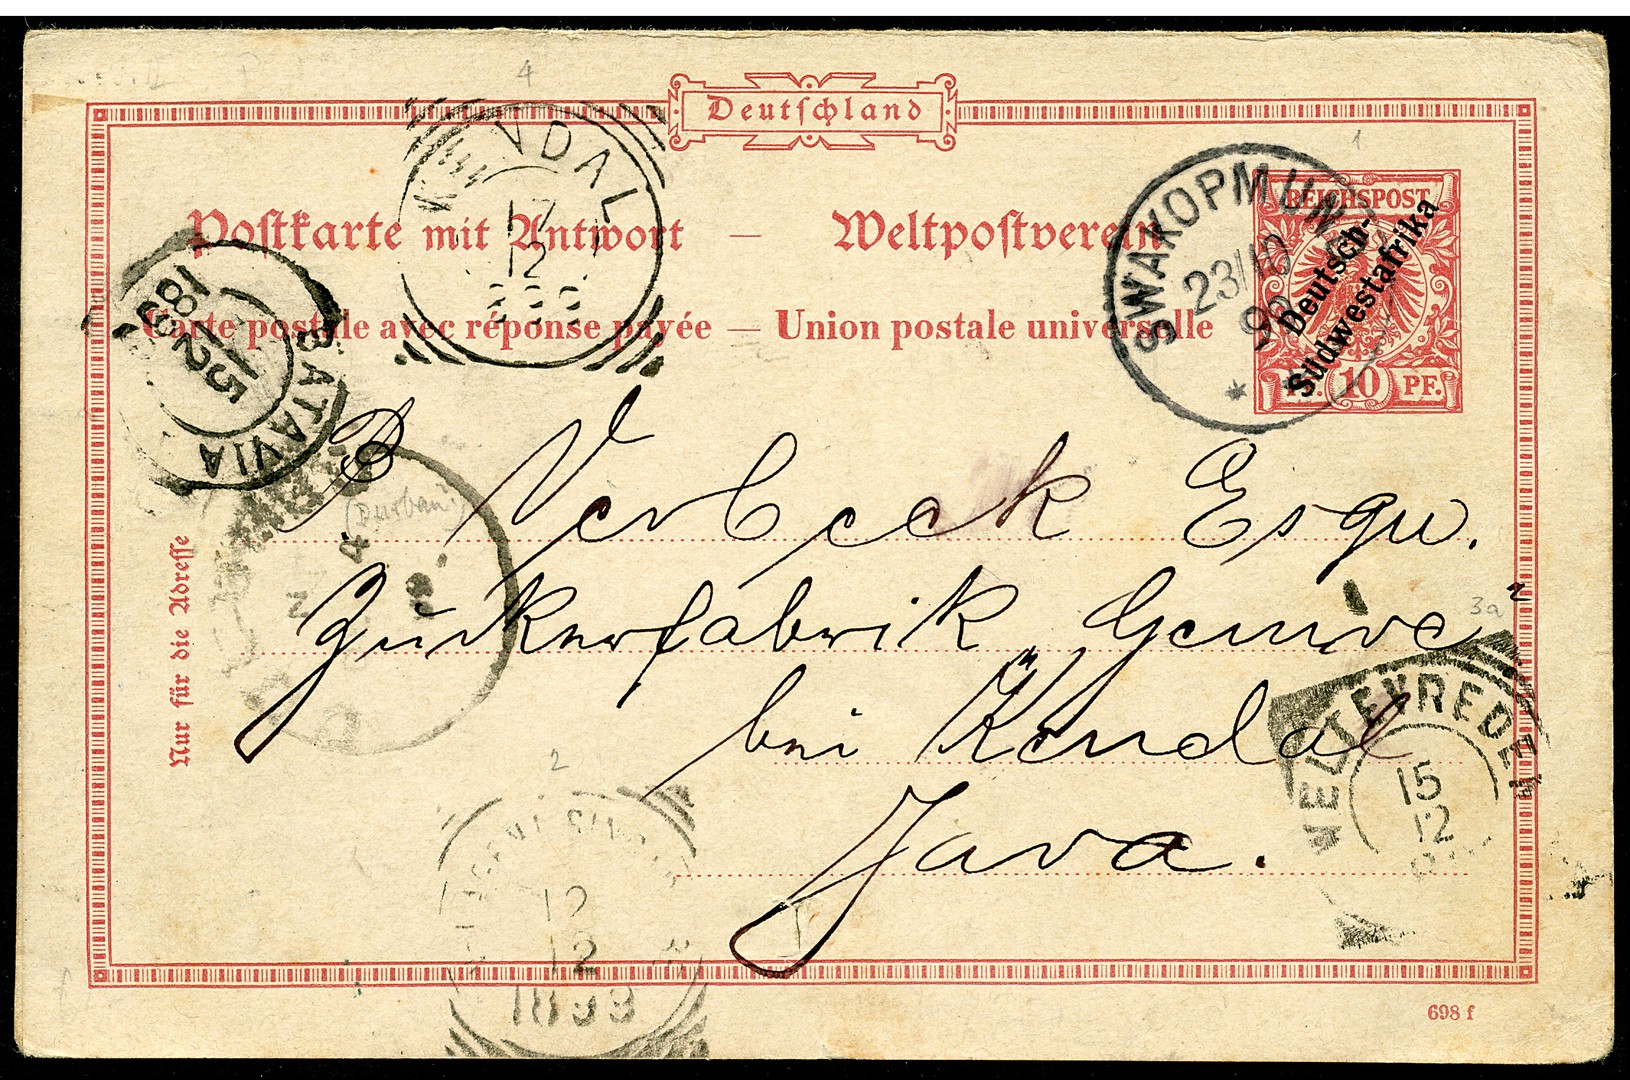 Deutschland
Postkarte mit Antwort — Weltpostverein
Carte postale avec réponse payée — Union postale universelle
REICHSPOST
PF. 10 PF.
Deutsch-
Südwestafrika
SWAKOPMUND
23/10
99
KENDAL
17
12
BATAVIA
15
12
1899
P Verbeek Esqu.
Zuckerfabrik Gemoe
bei Kendal
Java.
(Durban)
Nur für die Adresse
WELTEVREDEN
15
12
12
12
1899
1
2
3a
4
698 f